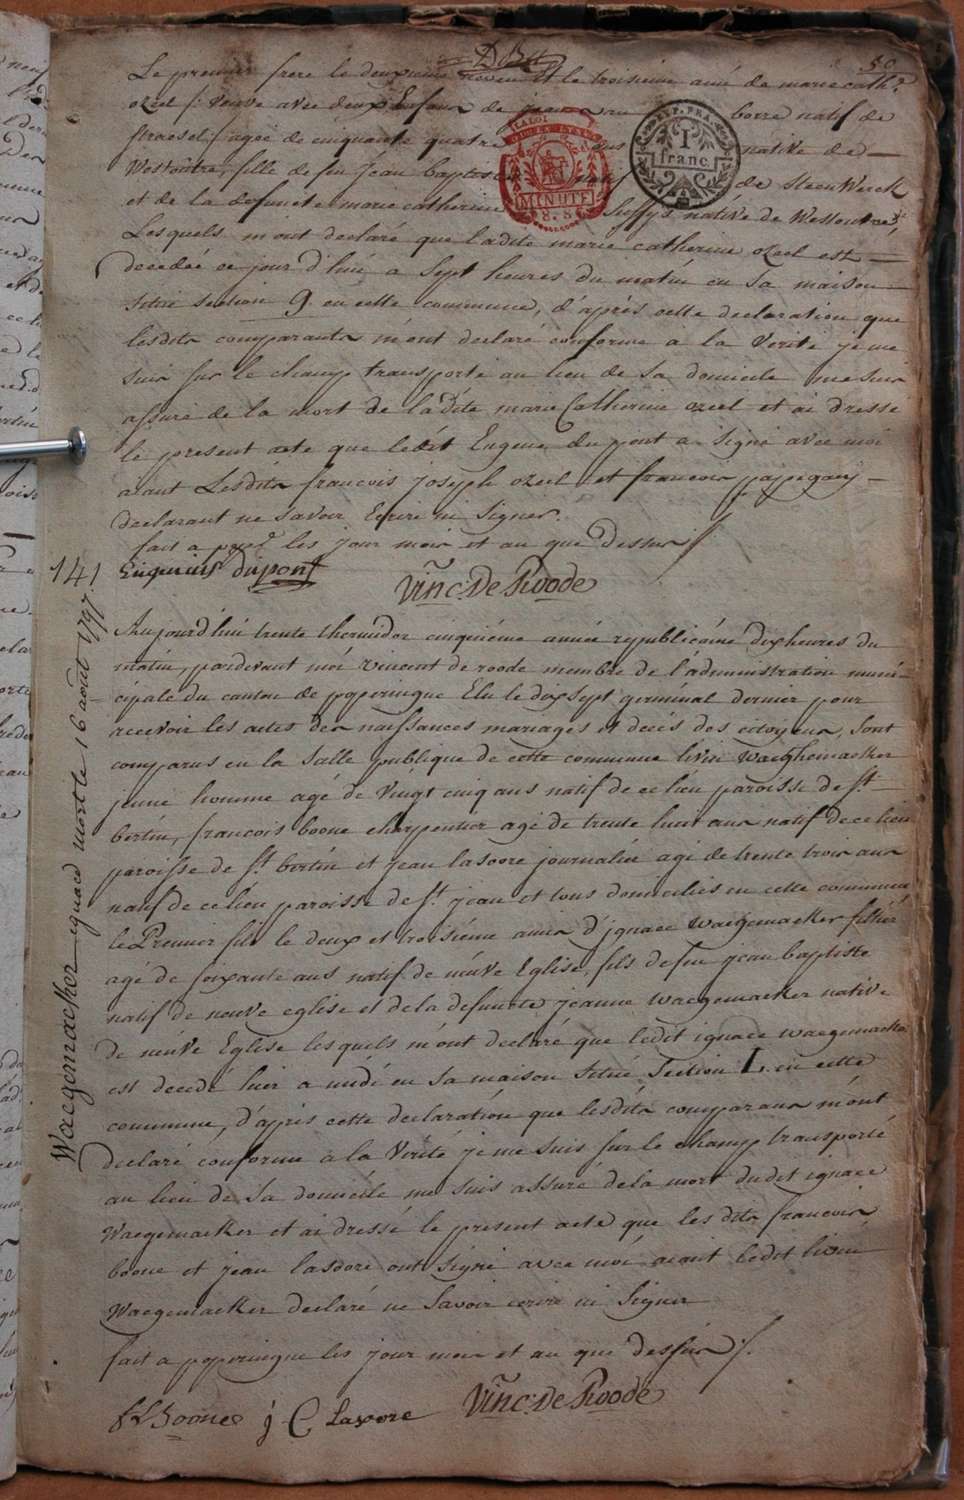 50
Le premier frere le deuxieme neveu et le troisieme ami de marie cath.e
ozeel f: veuve avec deux Enfans de jean borre natif de
Straesel agée de cinquante quatre ans native de
Westoutre, fille de feu jean baptiste natif de SteenWerck
et de la defuncte marie catherine native de Westoutre,
LA LOI
MINUTE
8. S.
REP. FRA.
1
franc
Lesquels m'ont declaré que ladite marie catherine ozeel est
decedée ce jour d'hui a Sept heures du matin en sa maison
située section 9 en cette commune, d'après cette declaration que
lesdits comparants m'ont declaré conforme a la Verité je me
suis sur le champ transporté au lieu de sa domicile me suis
assuré de la mort de ladite marie Catherine ozeel et ai dressé
le present acte que ledit Eugene dupont a signé avec moi
aiant Lesdits francois joseph ozeel et francois
declarant ne savoir Ecrire ni Signer.
fait a pope. les jour mois et an que Dessus /.
dupont
Vinc: De Roode
141
Waegemacker ignace mort le 16 août 1797
Aujourd'hui trente thermidor cinquiéme année republicaine dix heures du
matin, pardevant moi vincent de roode membre de l'administration muni-
cipale du canton de poperingue Elu le dix sept germinal dernier pour
recevoir les actes des naissances mariages et décés des citoyens, sont
comparus en la Salle publique de cette commune livin Waeghemacker
jeune homme agé de Vingt cinq ans natif de ce lieu paroisse de St
bertin, francois boone charpentier agé de trente huit ans natif de ce lieu
paroisse de St. bertin et jean lasoore journalier agé de trente trois ans
natif de ce lieu paroisse de St. jean et tous domiciliés en cette commune
le Premier fils le deux et troisiéme amis d'ignace Waegemacker
agé de soixante ans natif de neuve Eglise, fils de feu jean baptiste
natif de neuve eglise et de la defuncte jeanne Waegemacker native
de neuve Eglise lesquels m'ont declaré que ledit ignace waegemacker
est decedé hier a midi en sa maison située Section L. en cette
commune, d'après cette declaration que lesdits comparans m'ont
declaré conforme a la Verité je me suis sur le champ transporté
au lieu de sa domicile me suis assuré de la mort dudit ignace
Waegemacker et ai dressé le present acte que les dits francois
boone et jean lasoore ont signé avec moi aiant ledit livin
Waegemacker declaré ne savoir ecrire ni Signer
fait a poperingue les jour mois et an que dessus /.
Boone j C Lasore Vinc: De Roode